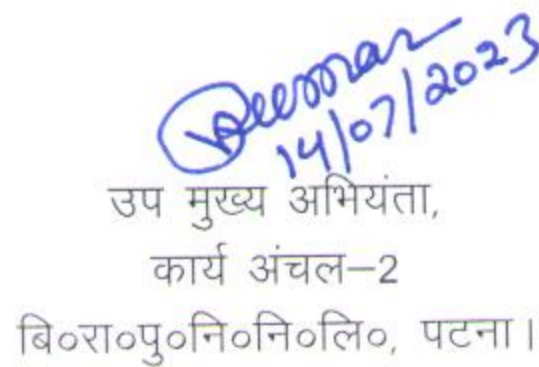 14/07/2023
उप मुख्य अभियंता,
कार्य अंचल–2
बि०रा०पु०नि०नि०लि०, पटना।